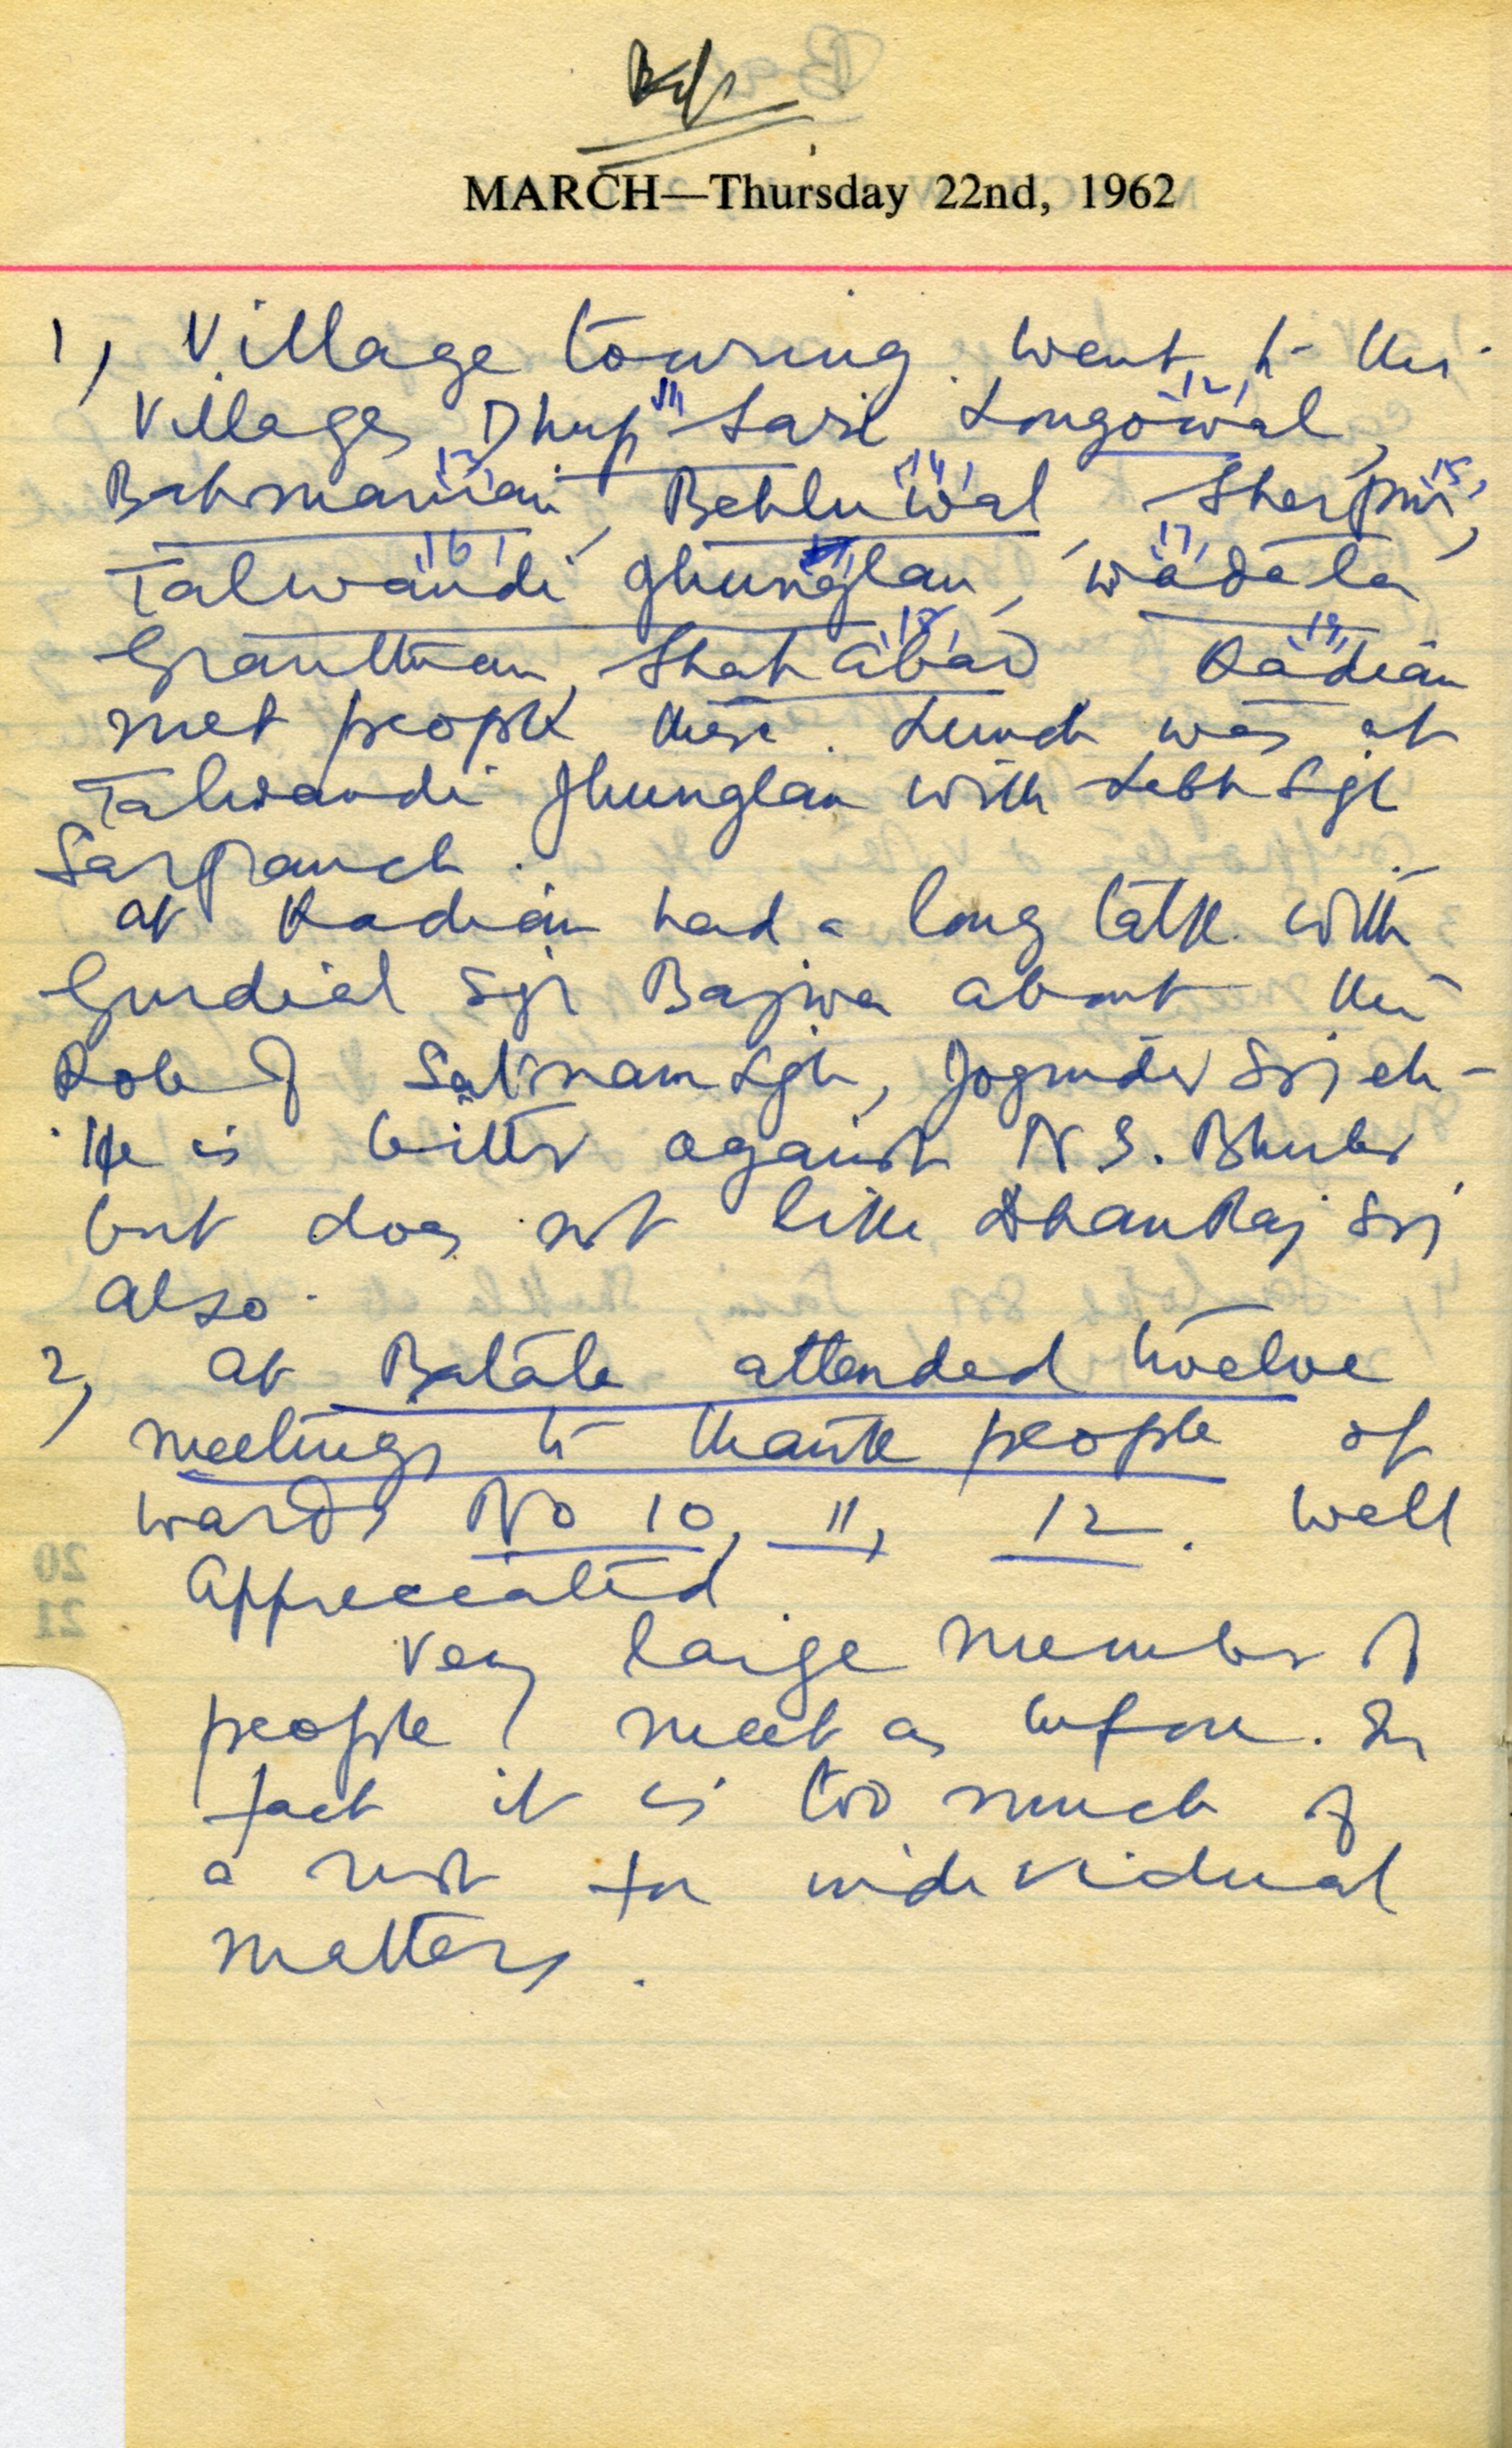 MARCH—Thursday 22nd, 1962
1, Village touring. Went to the
Villages Dhup Sari "11" Longowal "12",
Bahmanian "13", Behluwal "14", Sherpur "15",
Talwandi Jhunglan "16", Wadala "17"
Granthian, Shahabad "18" Kadian "19"
met people there. Lunch was at
Talwandi Jhunglan with Labh Sgh
Sarpanch.
at Kadian had a long talk with
Gurdial Sgh Bajwa about the
Role of Satnam Sgh, Joginder etc -
He is bitter against N.S.
but does not like Dhanraj
also.
2, at Batala attended twelve
meetings to thank people of
wards No 10, 11, 12. Well
Appreciated
Very large number of
people meet as before. In
fact it is too much of
a for individual
matters.